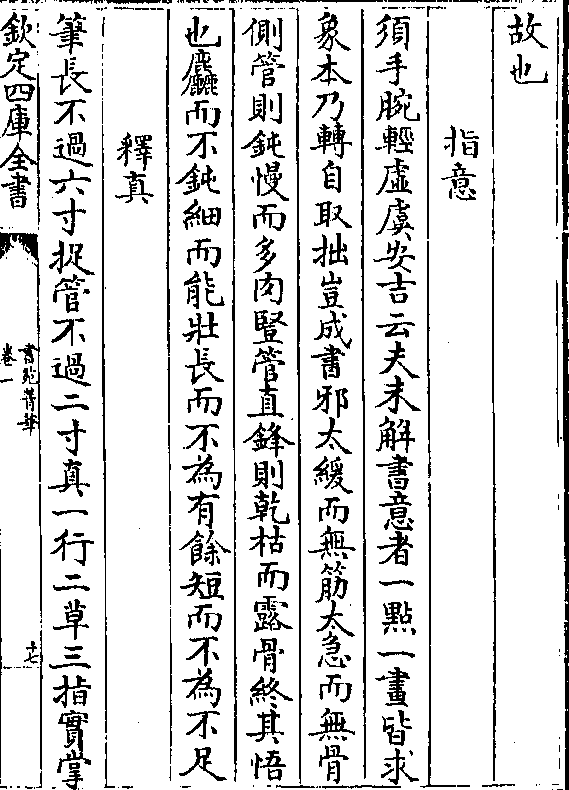 故也
指意
須手腕輕虛虞安吉云夫未解書意者一點一畫皆求
象本乃轉自取拙豈成書邪太緩而無筋太急而無骨
側管則鈍慢而多肉豎管直鋒則乾枯而露骨終其悟
也麤而不鈍細而能壯長而不為有餘短而不為不足
釋真
筆長不過六寸捉管不過二寸真一行二草三指實掌
欽定四庫全書
書苑菁華
卷一
十七